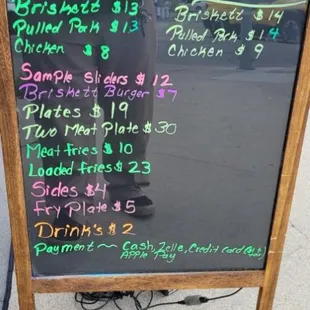 Briskett $13
Pulled Pork $13
Chicken $8
Briskett $14
Pulled Pork $14
Chicken $9
Sample Sliders $12
Briskett Burger $7
Plates $19
Two Meat Plate $30
Meat fries $10
Loaded fries $23
Sides $4
Fry Plate $5
Drink's $2
Payment ~ Cash, Zelle, Credit Card
Apple Pay